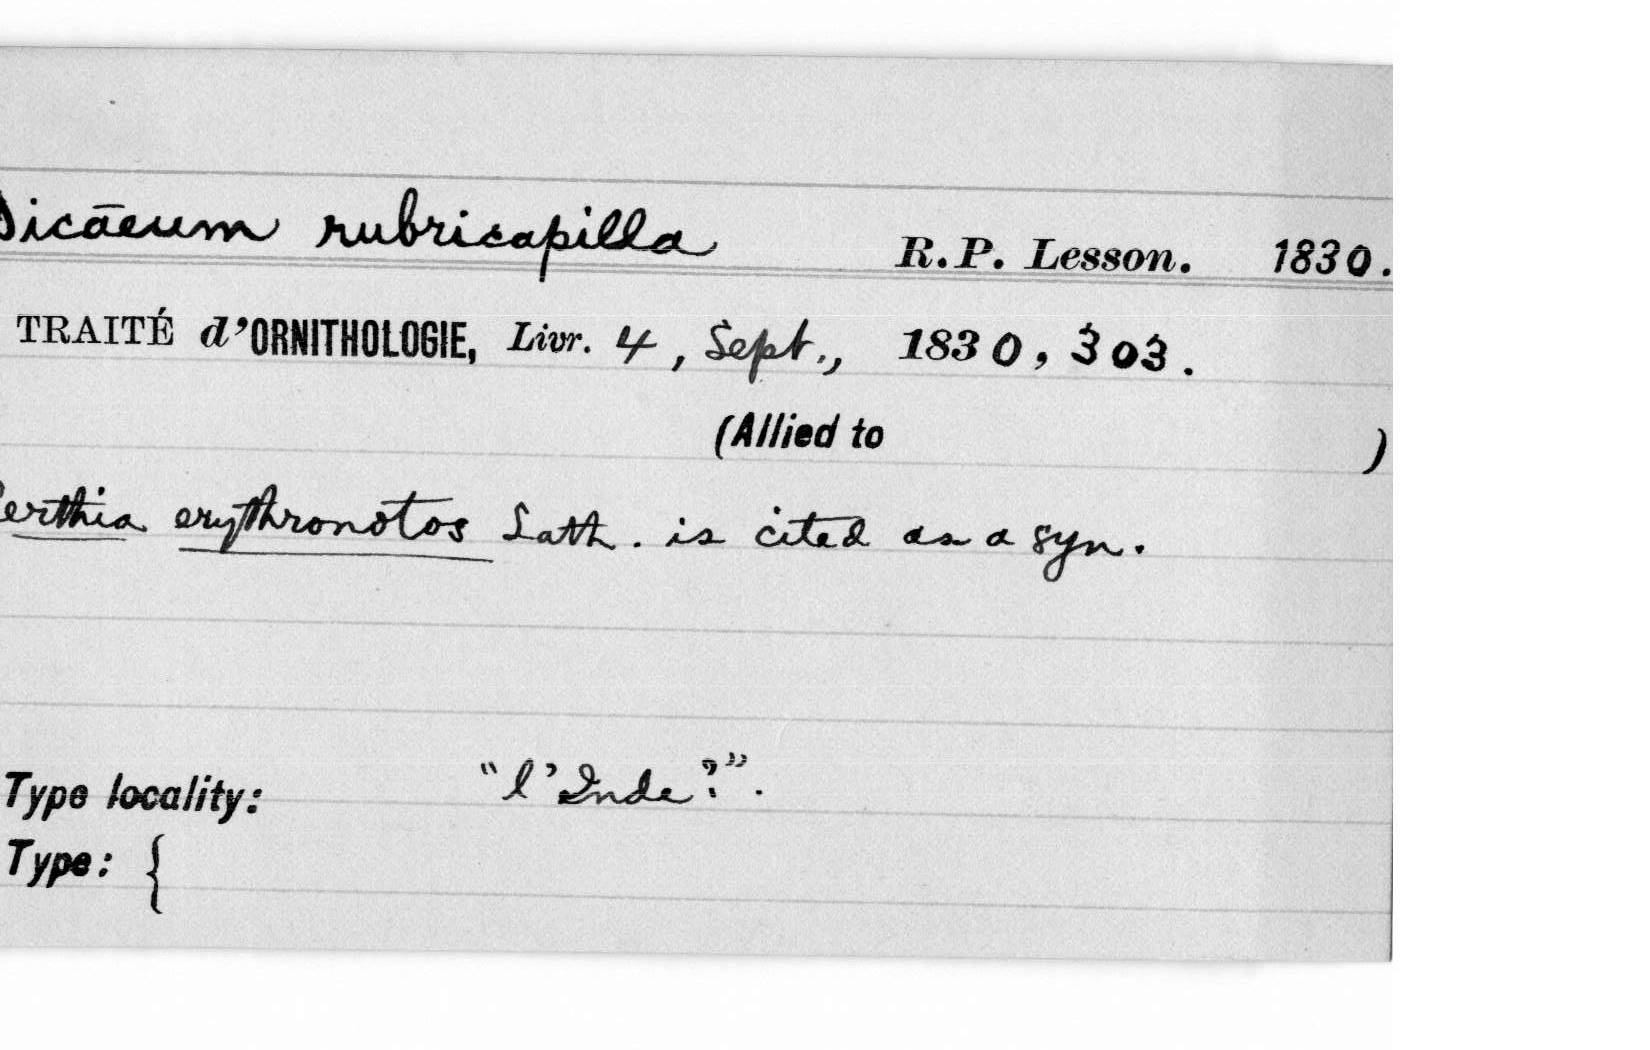 Dicāeum rubricapilla R.P. Lesson. 1830.
TRAITÉ d'ORNITHOLOGIE, Livr. 4, Sept., 1830, 303.
(Allied to )
Certhia erythronotos Lath. is cited as a syn.
Type locality: "l'Inde?".
Type: {